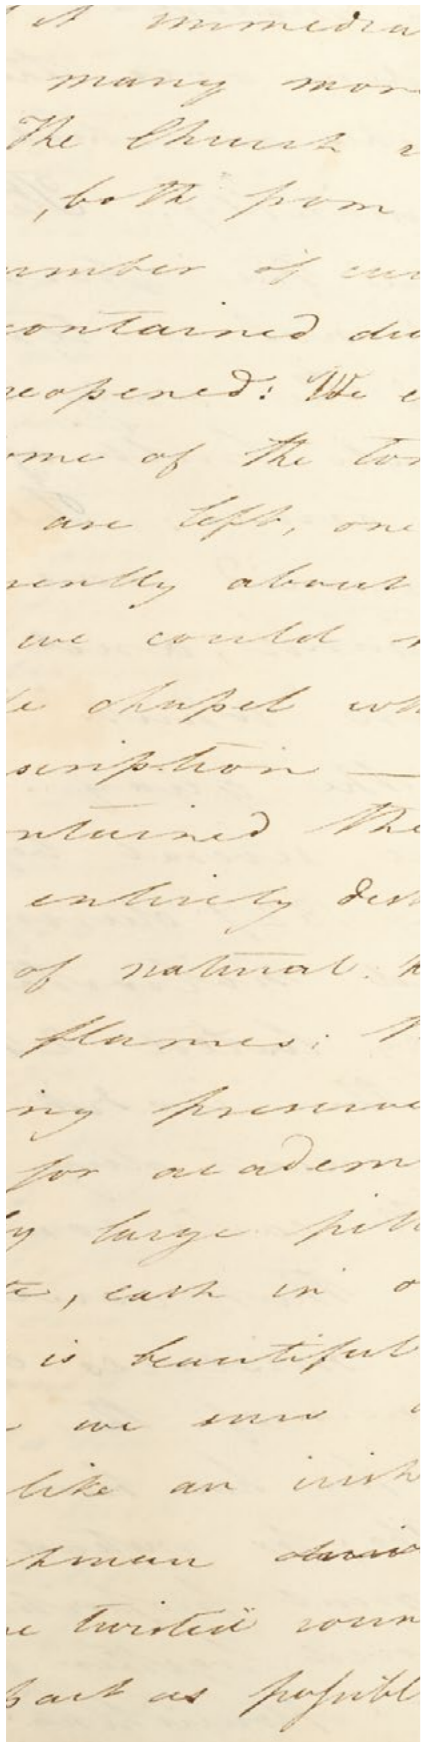 it immedia
many mor
The Church
, both from
umber of
contained du
reopened: We e
ome of the tor
are left, one
rently about
we could
le chapel wh
scription —
ntained the
entirely dest
of natural
flames:
ing preserve
for academ
ly large pill
te, each in o
is beautiful
we saw
like an irish
hman
e twisted roun
back as possibl